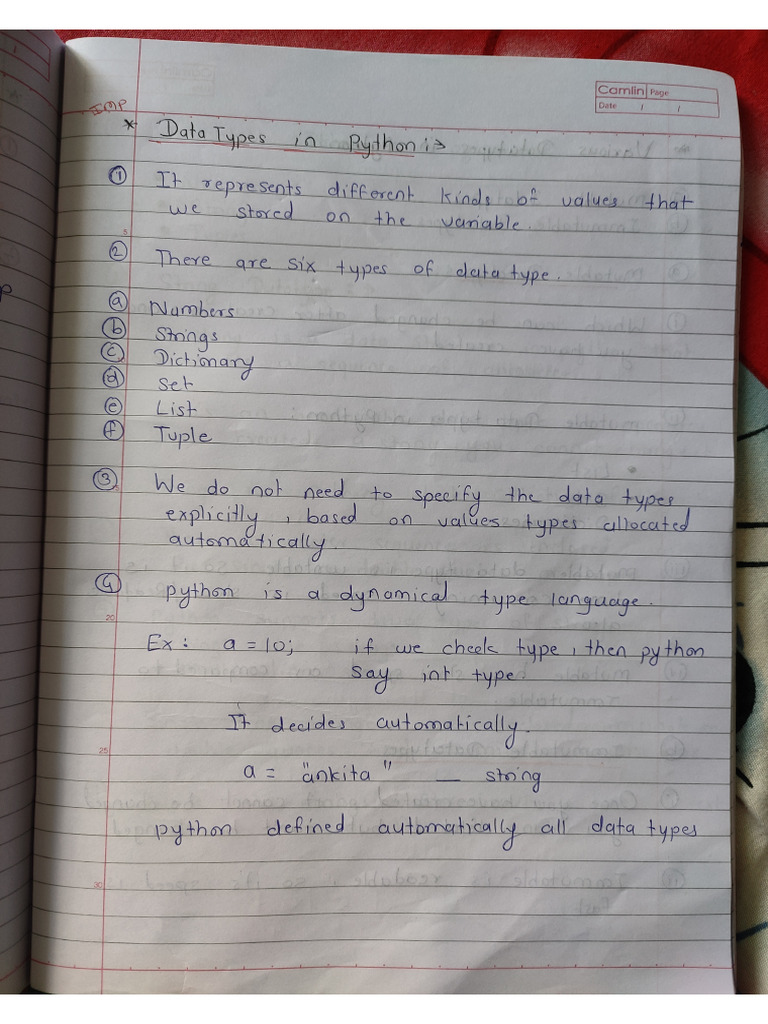 Camlin Page
Date / /
IMP
* Data Types in Python :→
① It represents different kinds of values that
we stored on the variable.
② There are six types of data type.
ⓐ Numbers
ⓑ Strings
ⓒ Dictionary
ⓓ Set
ⓔ List
ⓕ Tuple
③ We do not need to specify the data types
explicitly, based on values types allocated
automatically
④ python is a dynamical type language.
20
Ex: a = 10; if we check type, then python
say int type.
It decides automatically.
25
a = "ankita" — string
python defined automatically all data types
30